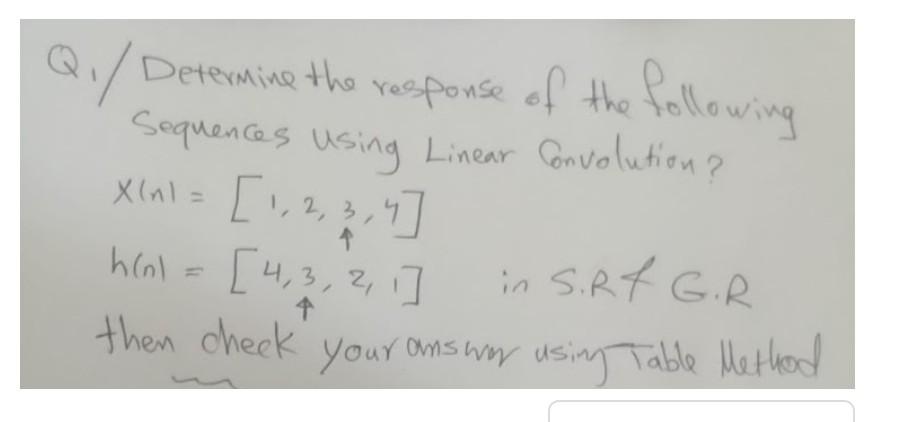 Q1/ Determine the response of the following
Sequences using Linear Convolution?
X(n) = [1, 2, 3, 4]
↑
h(n) = [4, 3, 2, 1] in S.R & G.R
↑
then check your answer using Table Method